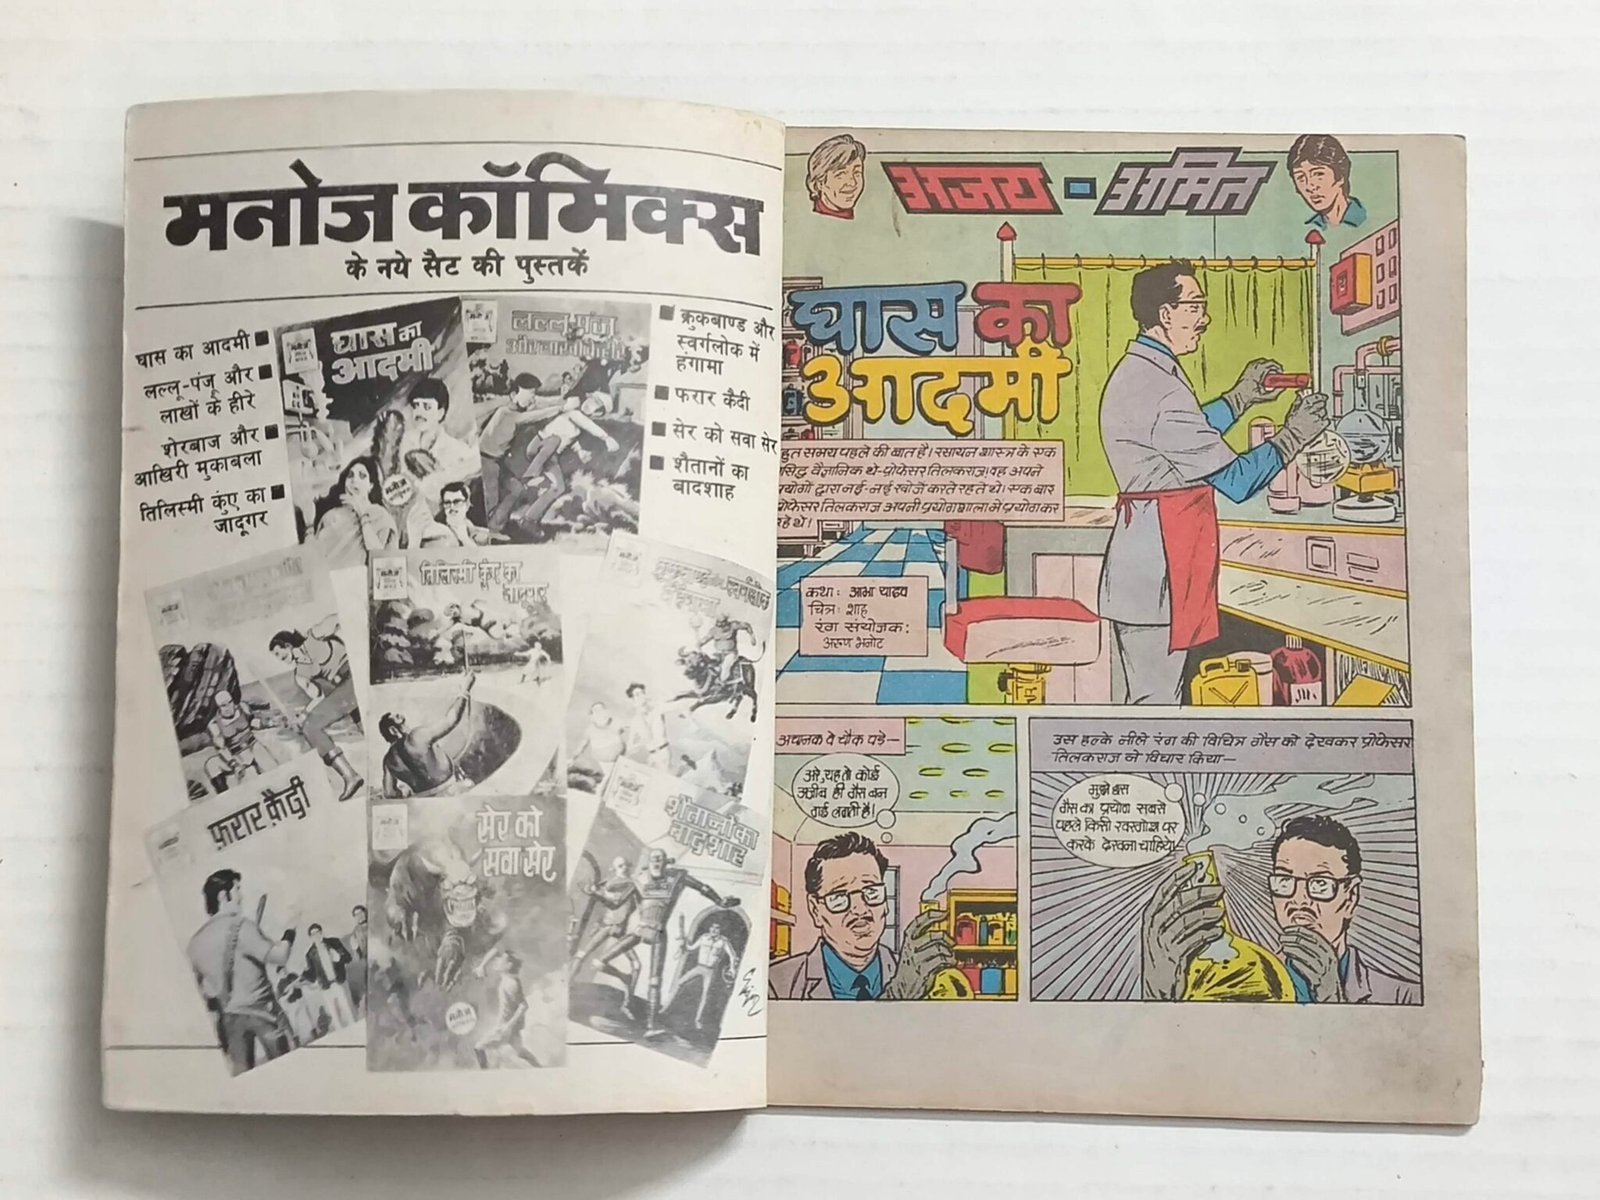 मनोज कॉमिक्स
के नये सैट की पुस्तकें
घास का आदमी
लल्लू-पंजू और
लाखों के हीरे
शेरबाज और
आखिरी मुकाबला
तिलिस्मी कुंए का
जादूगर
क्रुकबाण्ड और
स्वर्गलोक में
हंगामा
फरार कैदी
सेर को सवा सेर
शैतानों का
बादशाह
घास का
आदमी
लल्लू पंजू
तिलिस्मी कुंए का
जादूगर
फ़रार क़ैदी
सेर को
सवा सेर
शैतानों का
बादशाह
मनोज
अजय-अमित
घास का
आदमी
हुत समय पहले की बात है। रसायन शास्त्र के एक
सिद्ध वैज्ञानिक थे-प्रोफेसर तिलकराज। वह अपने
प्रयोगों द्वारा नई-नई खोजें करते रहते थे। एक बार
प्रोफेसर तिलकराज अपनी प्रयोगशाला में प्रयोग कर
रहे थे।
कथा: आभा यादव
चित्र: शाह
रंग संयोजक:
अरुण भनोट
अचानक वे चौंक पड़े—
अरे, यह तो कोई
अजीब ही गैस बन
गई लगती है।
उस हल्के नीले रंग की विचित्र गैस को देखकर प्रोफेसर
तिलकराज ने विचार किया—
मुझे इस
गैस का प्रयोग सबसे
पहले किसी खरगोश पर
करके देखना चाहिये।